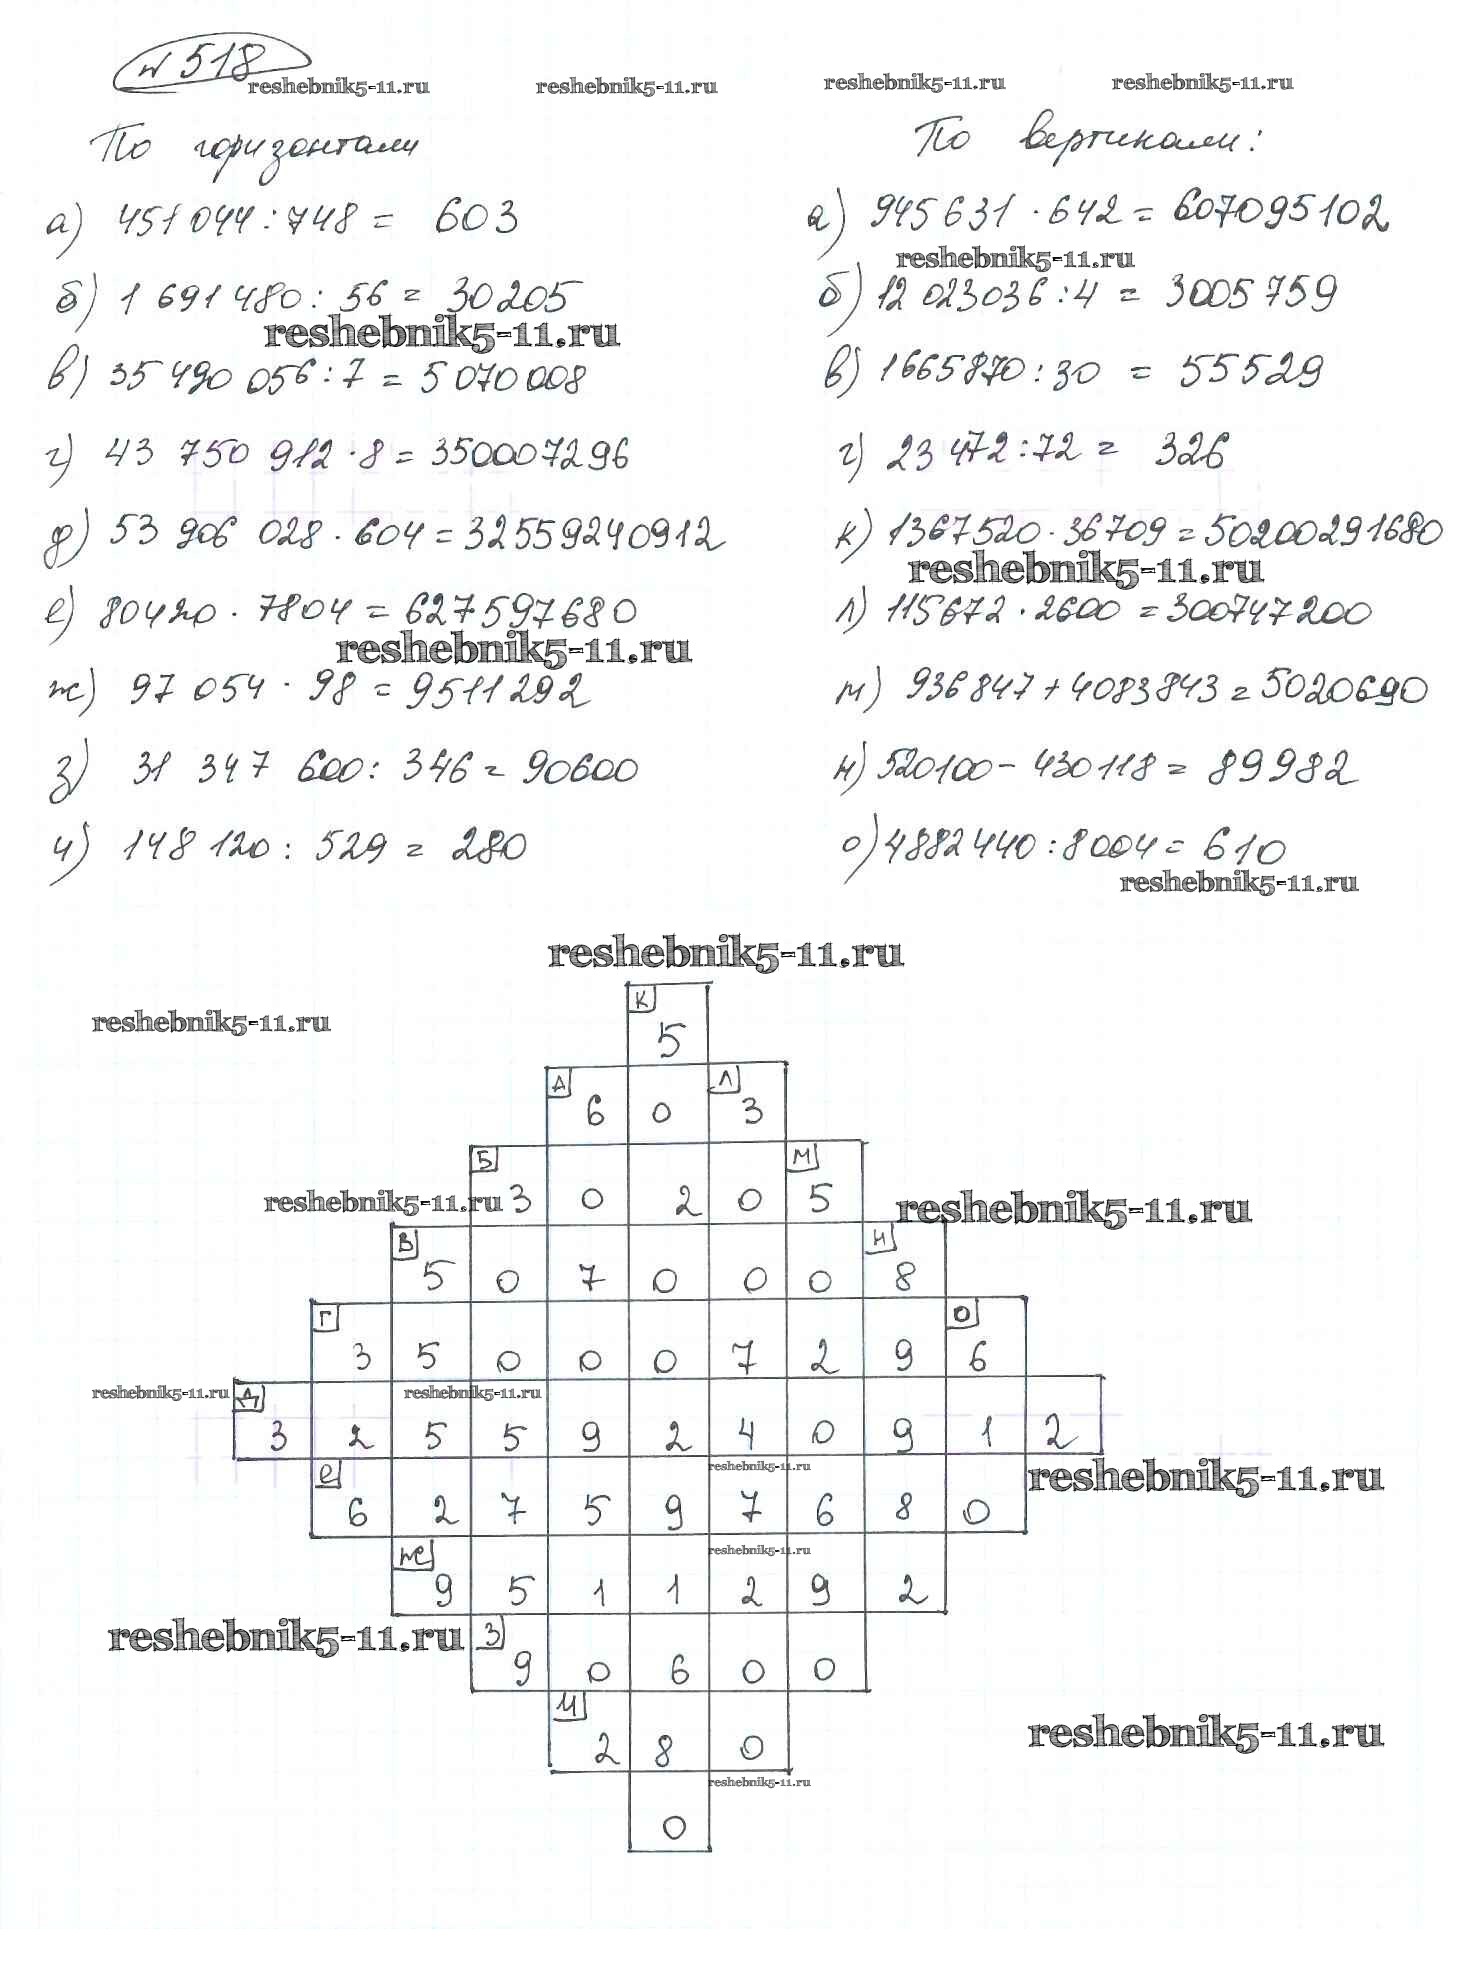 № 518
reshebnik5-11.ru reshebnik5-11.ru reshebnik5-11.ru reshebnik5-11.ru
По горизонтали
а) 451 044 : 748 = 603
б) 1 691 480 : 56 = 30205
reshebnik5-11.ru
в) 35 490 056 : 7 = 5 070 008
г) 43 750 912 · 8 = 350007296
д) 53 906 028 · 604 = 32559240912
е) 80420 · 7804 = 627597680
reshebnik5-11.ru
ж) 97 054 · 98 = 9511292
з) 31 347 600 : 346 = 90600
и) 148 120 : 529 = 280
По вертикали:
а) 945 631 · 642 = 607095102
reshebnik5-11.ru
б) 12 023036 : 4 = 3005759
в) 1665870 : 30 = 55529
г) 23 472 : 72 = 326
к) 1367520 · 36709 = 50200291680
reshebnik5-11.ru
л) 115672 · 2600 = 300747200
м) 936847 + 4083843 = 5020690
н) 520100 - 430118 = 89982
о) 4882440 : 8004 = 610
reshebnik5-11.ru
reshebnik5-11.ru
reshebnik5-11.ru
К
5
А Л
6 0 3
Б М
reshebnik5-11.ru 3 0 2 0 5 reshebnik5-11.ru
В Н
5 0 7 0 0 0 8
Г О
3 5 0 0 0 7 2 9 6
reshebnik5-11.ru Д reshebnik5-11.ru
3 2 5 5 9 2 4 0 9 1 2
reshebnik5-11.ru
Е reshebnik5-11.ru
6 2 7 5 9 7 6 8 0
Ж reshebnik5-11.ru
9 5 1 1 2 9 2
reshebnik5-11.ru З
9 0 6 0 0
И
2 8 0 reshebnik5-11.ru
reshebnik5-11.ru
0